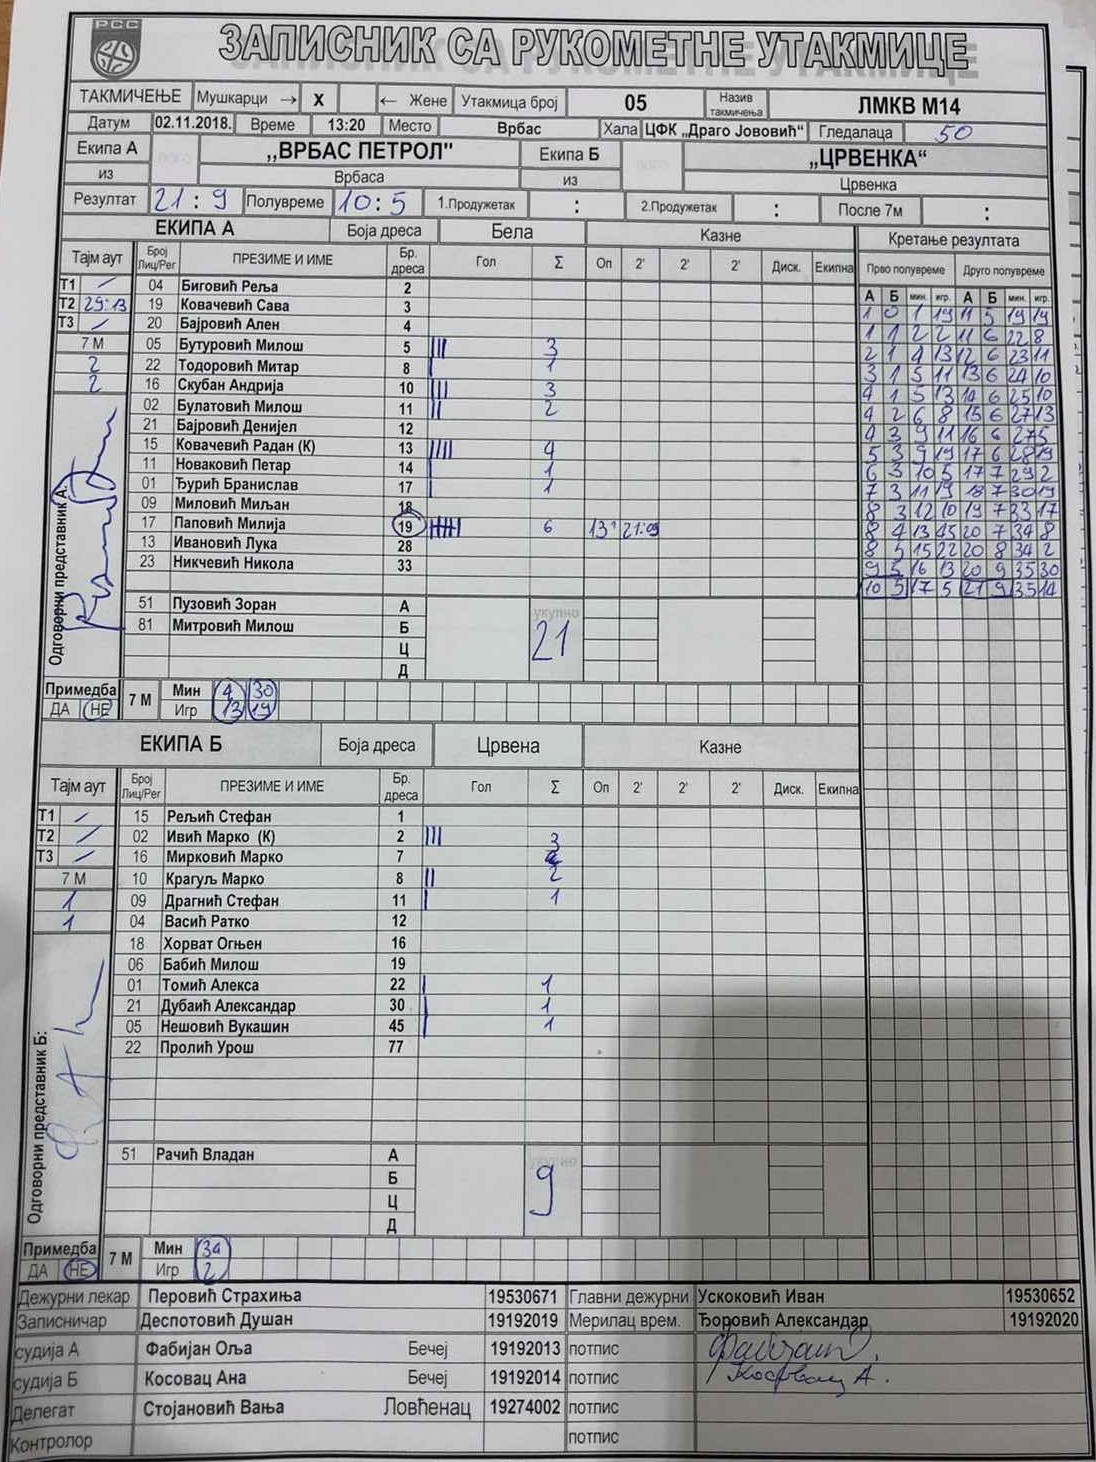 РСС
ЗАПИСНИК СА РУКОМЕТНЕ УТАКМИЦЕ
ТАКМИЧЕЊЕ Мушкарци → X ← Жене Утакмица број 05 Назив такмичења ЛМКВ М14
Датум 02.11.2018. Време 13:20 Место Врбас Хала ЦФК „Драго Јововић“ Гледалаца 50
Екипа А „ВРБАС ПЕТРОЛ" Екипа Б „ЦРВЕНКА“
из Врбаса из Црвенка
Резултат 21 : 9 Полувреме 10 : 5 1.Продужетак : 2.Продужетак : После 7м :
ЕКИПА А Боја дреса Бела Казне Кретање резултата
Тајм аут Број Лиц/Рег ПРЕЗИМЕ И ИМЕ Бр. дреса Гол Σ Оп 2' 2' 2' Диск. Екипна Прво полувреме Друго полувреме
А Б мин. игр. А Б мин. игр.
Т1 / 04 Биговић Реља 2
Т2 29:13 19 Ковачевић Сава 3
Т3 / 20 Бајровић Ален 4
7 М 05 Бутуровић Милош 5 III 3
2 22 Тодоровић Митар 8 I 1
2 16 Скубан Андрија 10 III 3
02 Булатовић Милош 11 II 2
21 Бајровић Денијел 12
15 Ковачевић Радан (К) 13 IIII 4
11 Новаковић Петар 14 I 1
01 Ђурић Бранислав 17 I 1
09 Миловић Миљан 18
17 Паповић Милија 19 6 13' 21:09
13 Ивановић Лука 28
23 Никчевић Никола 33
1 0 1 19 11 5 19 19
1 1 2 2 11 6 22 8
2 1 4 13 12 6 23 11
3 1 5 11 13 6 24 10
4 1 5 13 14 6 25 10
4 2 6 8 15 6 27 13
4 3 9 11 16 6 27 5
5 3 9 19 17 6 28 19
6 3 10 5 17 7 29 2
7 3 11 19 18 7 30 19
8 3 12 10 19 7 33 17
8 4 13 45 20 7 34 8
8 5 15 22 20 8 34 2
9 5 16 13 20 9 35 30
10 5 17 5 21 9 35 14
51 Пузовић Зоран А укупно
81 Митровић Милош Б 21
Ц
Д
Одговорни представник А:
Примедба 7 М Мин 4 30
ДА НЕ Игр 13 19
ЕКИПА Б Боја дреса Црвена Казне
Тајм аут Број Лиц/Рег ПРЕЗИМЕ И ИМЕ Бр. дреса Гол Σ Оп 2' 2' 2' Диск. Екипна
Т1 / 15 Рељић Стефан 1
Т2 / 02 Ивић Марко (К) 2 III 3
Т3 / 16 Мирковић Марко 7
7 М 10 Крагуљ Марко 8 II 2
1 09 Драгнић Стефан 11 I 1
1 04 Васић Ратко 12
18 Хорват Огњен 16
06 Бабић Милош 19
01 Томић Алекса 22 I 1
21 Дубаић Александар 30 I 1
05 Нешовић Вукашин 45 I 1
22 Пролић Урош 77
51 Рачић Владан А укупно
Б 9
Ц
Д
Одговорни представник Б:
Примедба 7 М Мин 34
ДА НЕ Игр 2
Дежурни лекар Перовић Страхиња 19530671 Главни дежурни Ускоковић Иван 19530652
Записничар Деспотовић Душан 19192019 Мерилац врем. Ђоровић Александар 19192020
судија А Фабијан Оља Бечеј 19192013 потпис Фабијан О.
судија Б Косовац Ана Бечеј 19192014 потпис Косовац А.
Делегат Стојановић Вања Ловћенац 19274002 потпис
Контролор потпис